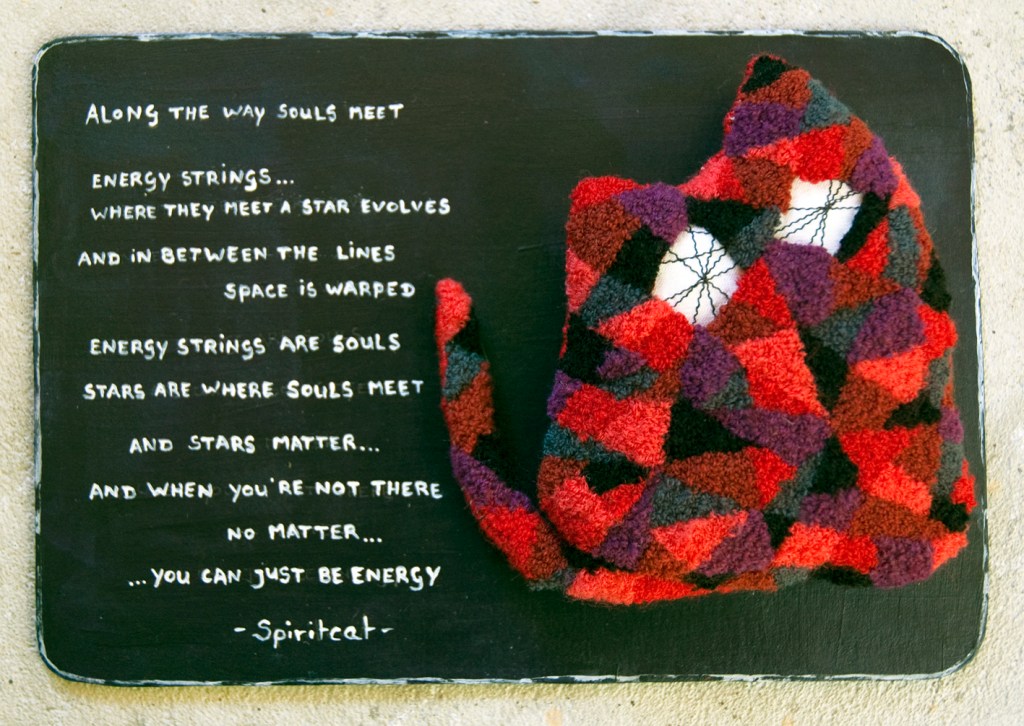 ALONG THE WAY SOULS MEET
ENERGY STRiNGS...
WHERE THEY MEET A STAR EVOLVES
AND iN BETWEEN THE LINES
SPACE iS WARPED
ENERGY STRiNGS ARE SOULS
STARS ARE WHERE SOULS MEET
AND STARS MATTER...
AND WHEN YOU'RE NOT THERE
NO MATTER...
...YOU CAN JUST BE ENERGY
-Spiritcat-